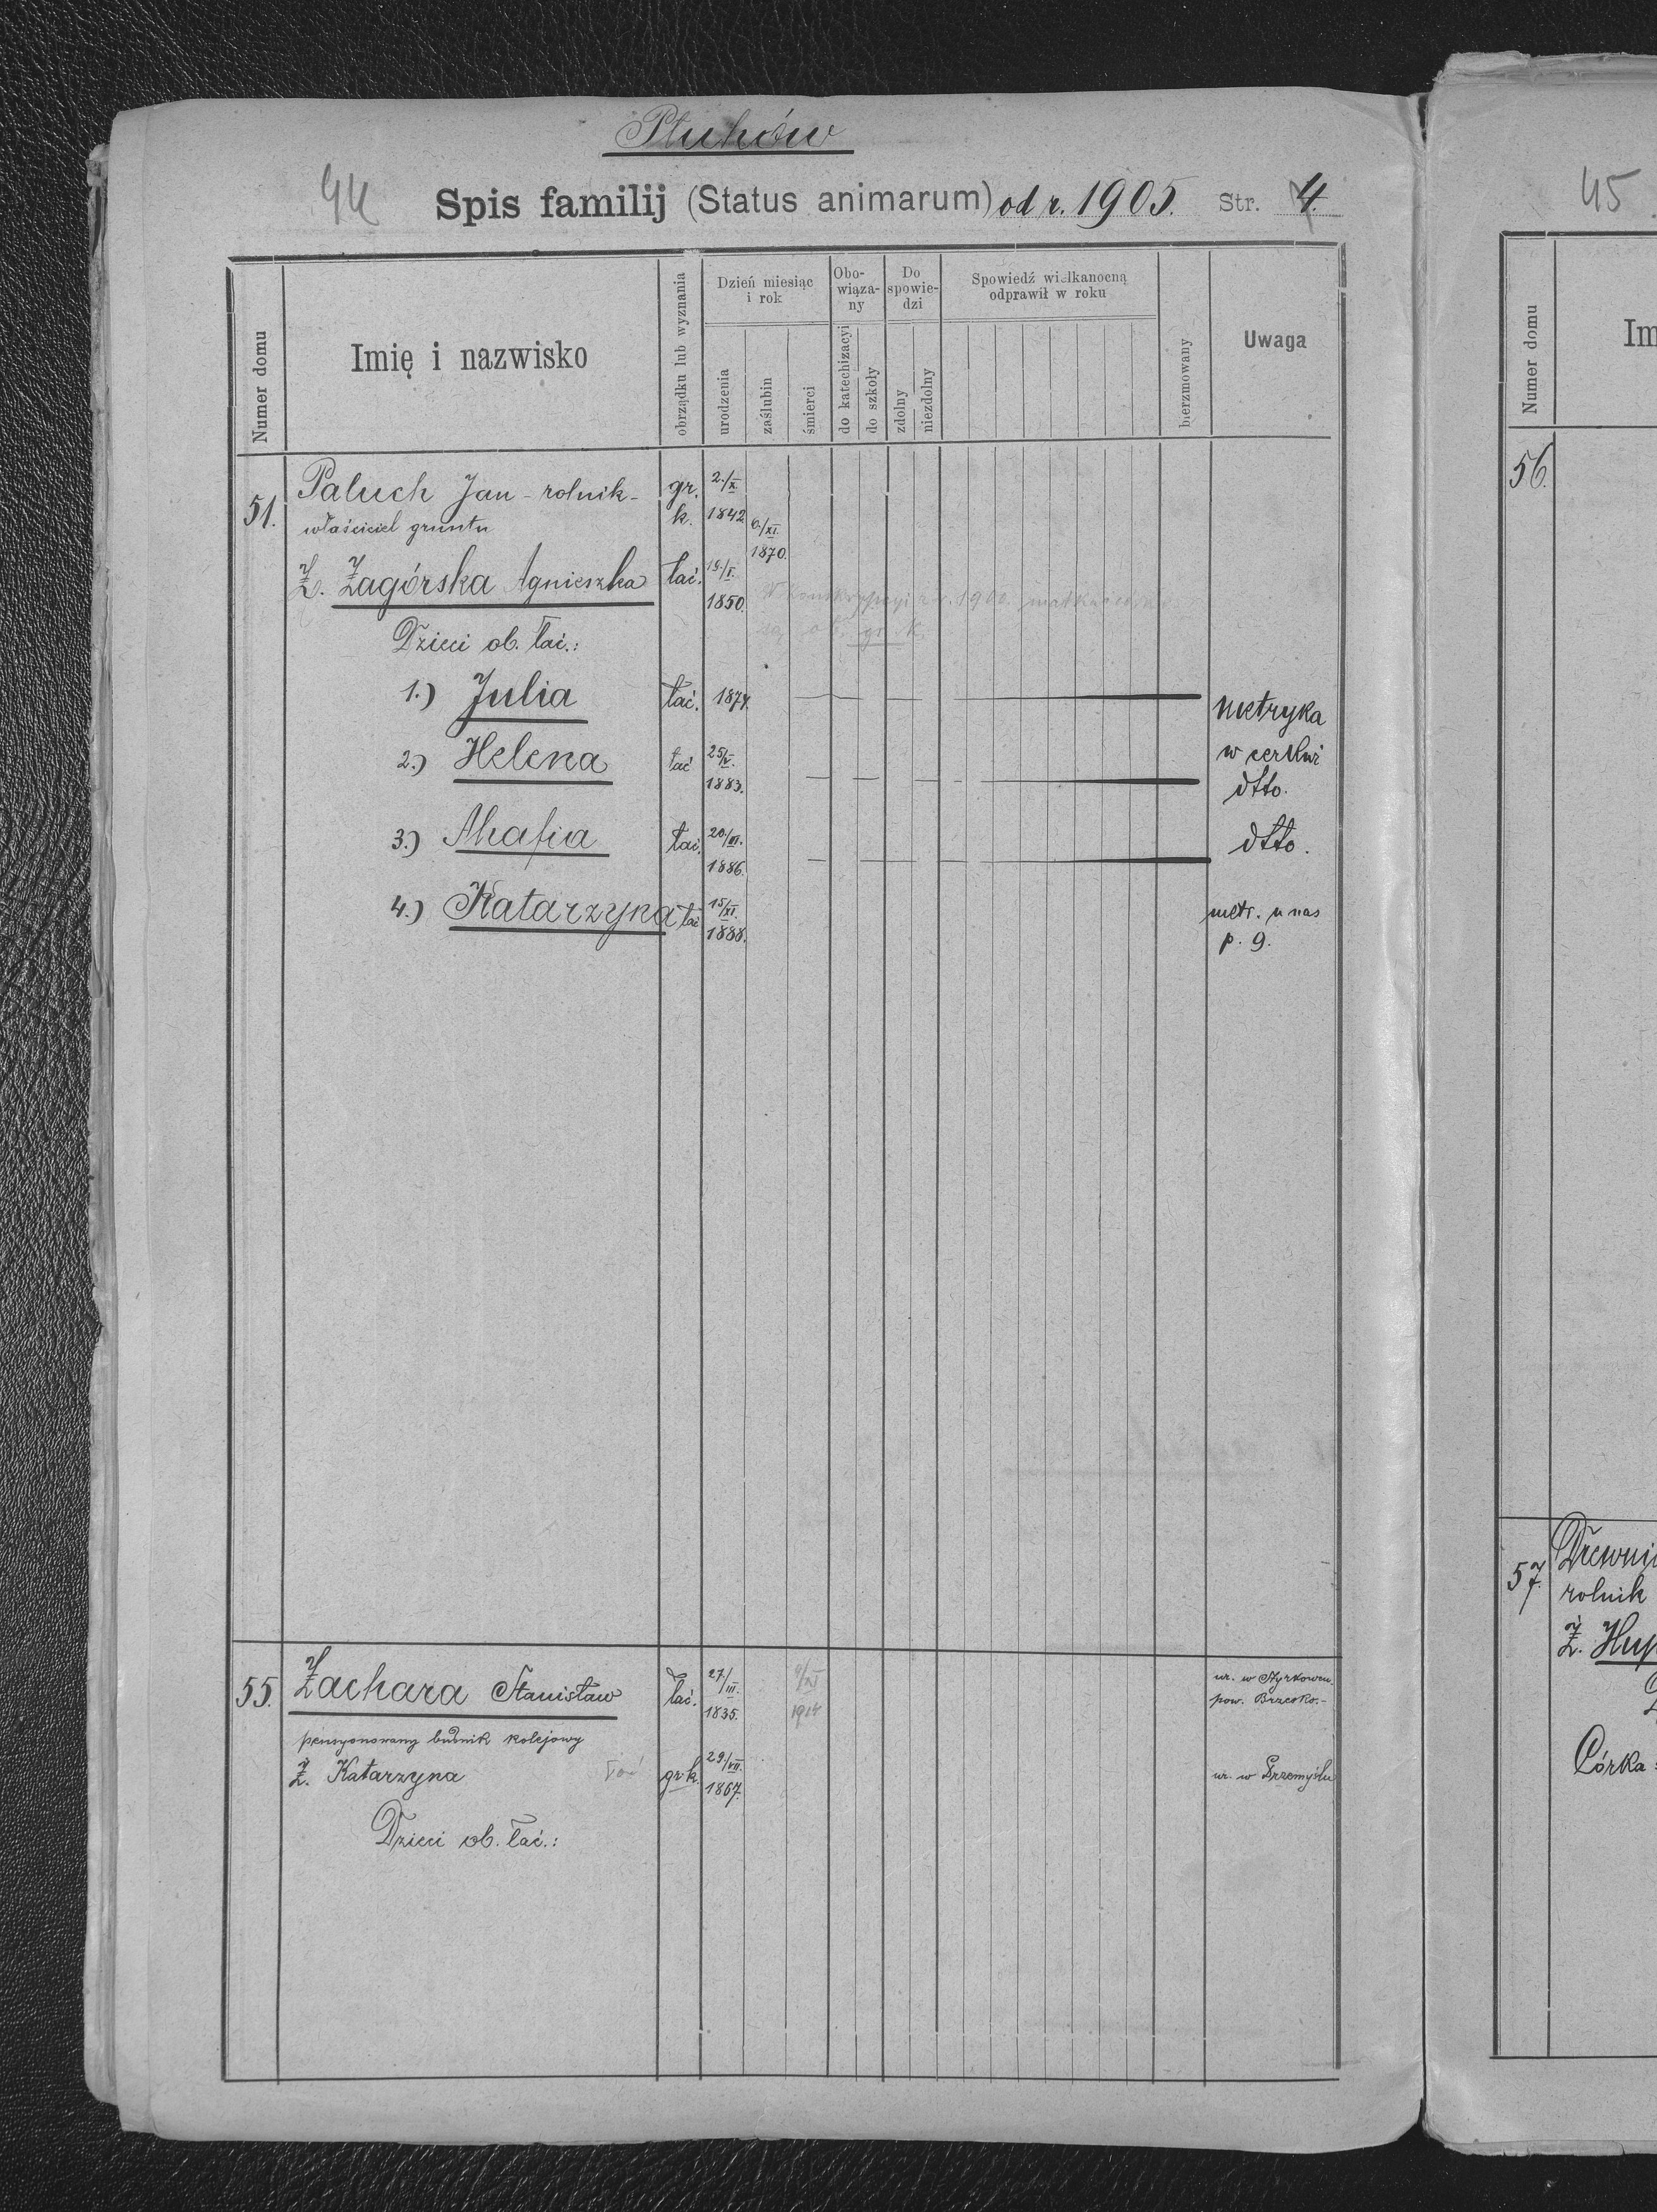 Płuhów
44 Spis familij (Status animarum) od r. 1905. Str. 4.
Numer domu
Imię i nazwisko
obrządku lub wyznania
Dzień miesiąc i rok
urodzenia
zaślubin
śmierci
Obo-wiąza-ny
do katechizacyi
do szkoły
Do spowie-dzi
zdolny
niezdolny
Spowiedź wielkanocną odprawił w roku
bierzmowany
Uwaga
51. Paluch Jan - rolnik - gr. k. 2./X. 1842
właściciel gruntu
6./XI. 1870.
Ż. Zagórska Agnieszka łać. 19./I. 1850.
w r. 1900.
gr. k.
Dzieci ob. łać.:
1.) Julia łać. 1874. metryka w cerkwi
2.) Helena łać 25/V. 1883. dtto.
3.) Ahafia łać. 20./VI. 1886. dtto.
4.) Katarzyna łać 15/XI. 1888. metr. u nas p. 9.
55. Żachara Stanisław łać. 27./III. 1835. ur. w pow. Brzesko.-
pensyonowany budnik kolejowy
Ż. Katarzyna łać gr. k. 29./VII. 1867. ur. w Przemyślu
Dzieci ob. łać.:
45
Numer domu
Im
56.
57. Drewni
rolnik
Ż. Hup
Córka: